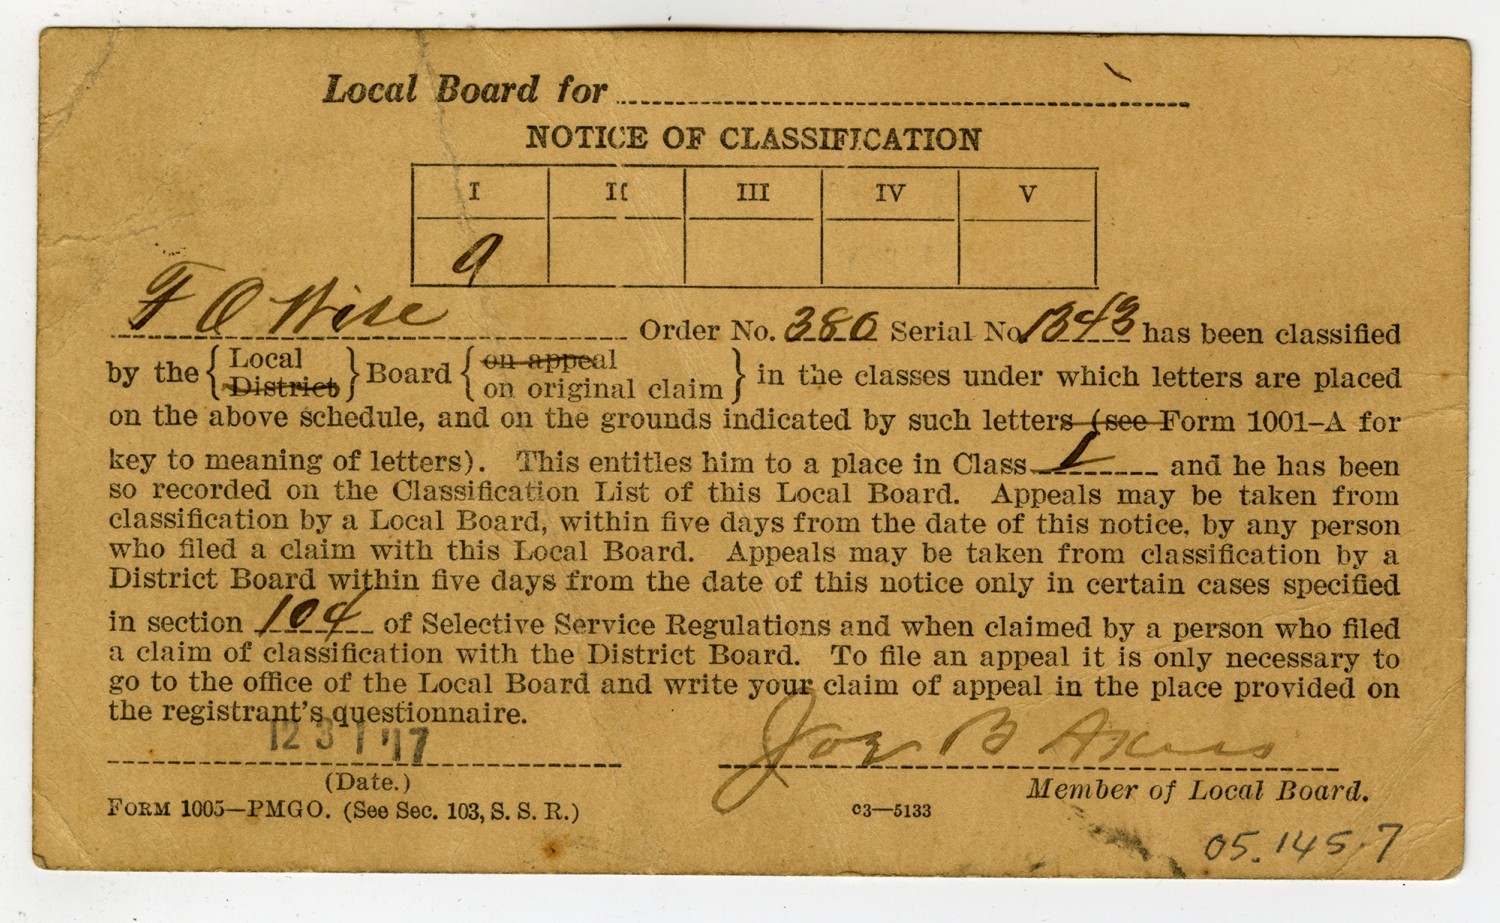 Local Board for
NOTICE OF CLASSIFICATION
I II III IV V
a
F O Wise Order No. 380 Serial No. 1343 has been classified
by the { Local District } Board { on appeal on original claim } in the classes under which letters are placed
on the above schedule, and on the grounds indicated by such letters (see Form 1001–A for
key to meaning of letters). This entitles him to a place in Class I and he has been
so recorded on the Classification List of this Local Board. Appeals may be taken from
classification by a Local Board, within five days from the date of this notice, by any person
who filed a claim with this Local Board. Appeals may be taken from classification by a
District Board within five days from the date of this notice only in certain cases specified
in section 104 of Selective Service Regulations and when claimed by a person who filed
a claim of classification with the District Board. To file an appeal it is only necessary to
go to the office of the Local Board and write your claim of appeal in the place provided on
the registrant's questionnaire.
12 31 '17 Joe B
(Date.) Member of Local Board.
FORM 1005—PMGO. (See Sec. 103, S. S. R.) c3—5133
05.145.7